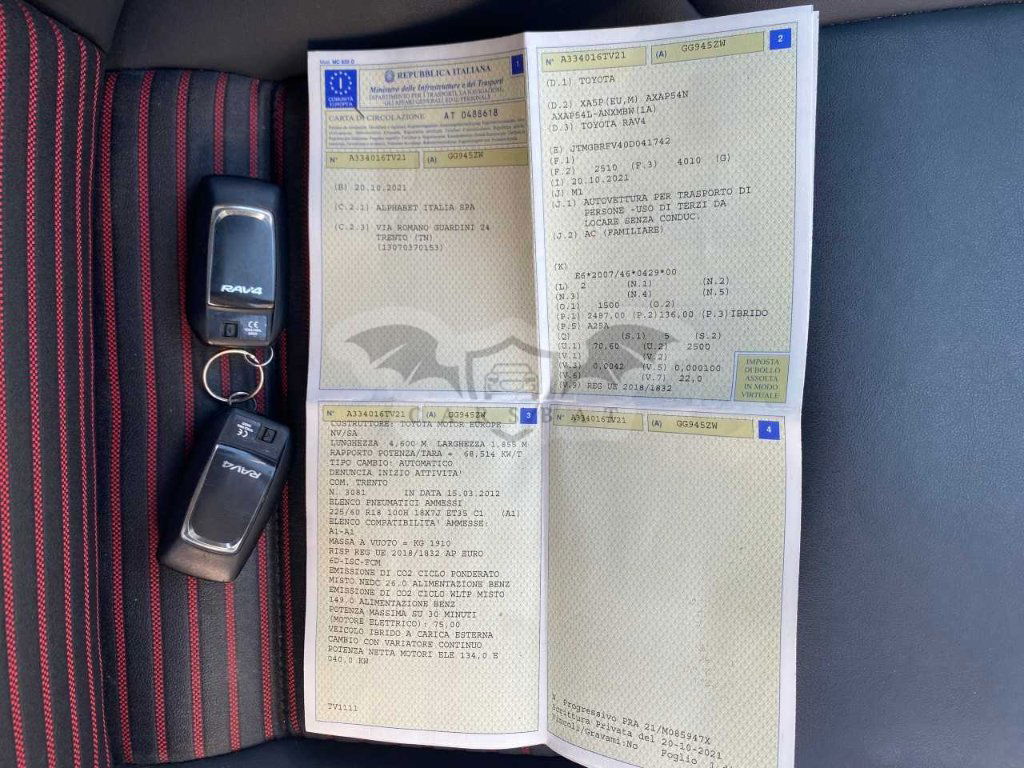 RAV4
CE
RAV4
CE
Mod. MC 820 D
1
REPUBBLICA ITALIANA
I
COMUNITÀ
EUROPEA
Ministero delle Infrastrutture e dei Trasporti
DIPARTIMENTO PER I TRASPORTI, LA NAVIGAZIONE,
GLI AFFARI GENERALI ED IL PERSONALE
CARTA DI CIRCOLAZIONE AT 0488618
N° A334016TV21 (A) GG945ZW
(B) 20.10.2021
(C.2.1) ALPHABET ITALIA SPA
(C.2.3) VIA ROMANO GUARDINI 24
TRENTO (TN)
(13070370153)
N° A334016TV21 (A) GG945ZW 2
(D.1) TOYOTA
(D.2) XA5P(EU,M) AXAP54N
AXAP54L-ANXMBW(1A)
(D.3) TOYOTA RAV4
(E) JTMGBRFV40D041742
(F.1)
(F.2) 2510 (F.3) 4010 (G)
(I) 20.10.2021
(J) M1
(J.1) AUTOVETTURA PER TRASPORTO DI
PERSONE -USO DI TERZI DA
LOCARE SENZA CONDUC.
(J.2) AC (FAMILIARE)
(K)
E6*2007/46*0429*00
(L) 2 (N.1) (N.2)
(N.3) (N.4) (N.5)
(O.1) 1500 (O.2)
(P.1) 2487,00 (P.2)136,00 (P.3)IBRIDO
(P.5) A25A
(Q) (S.1) 5 (S.2)
(U.1) 70,60 (U.2) 2500
(V.1) (V.2)
(V.3) 0,0042 (V.5) 0,000100
(V.6) (V.7) 22,0
(V.9) REG UE 2018/1832
IMPOSTA
DI BOLLO
ASSOLTA
IN MODO
VIRTUALE
N° A334016TV21 (A) GG945ZW 3
COSTRUTTORE: TOYOTA MOTOR EUROPE
NV/SA
LUNGHEZZA 4,600 M LARGHEZZA 1,855 M
RAPPORTO POTENZA/TARA = 68,514 KW/T
TIPO CAMBIO: AUTOMATICO
DENUNCIA INIZIO ATTIVITA'
COM. TRENTO
N. 3081 IN DATA 15.03.2012
ELENCO PNEUMATICI AMMESSI
225/60 R18 100H 18X7J ET35 C1 (A1)
ELENCO COMPATIBILITA' AMMESSE:
A1-A1
MASSA A VUOTO = KG 1910
RISP REG UE 2018/1832 AP EURO
6D-ISC-FCM
EMISSIONE DI CO2 CICLO PONDERATO
MISTO NEDC 26.0 ALIMENTAZIONE BENZ
EMISSIONE DI CO2 CICLO WLTP MISTO
149.0 ALIMENTAZIONE BENZ
POTENZA MASSIMA SU 30 MINUTI
(MOTORE ELETTRICO): 75,00
VEICOLO IBRIDO A CARICA ESTERNA
CAMBIO CON VARIATORE CONTINUO
POTENZA NETTA MOTORI ELE 134,0 E
040,0 KW
TV1111
N° A334016TV21 (A) GG945ZW 4
N. Progressivo PRA 21/M085947X
Scrittura Privata del 20-10-2021
Vincoli/Gravami:No Foglio 1